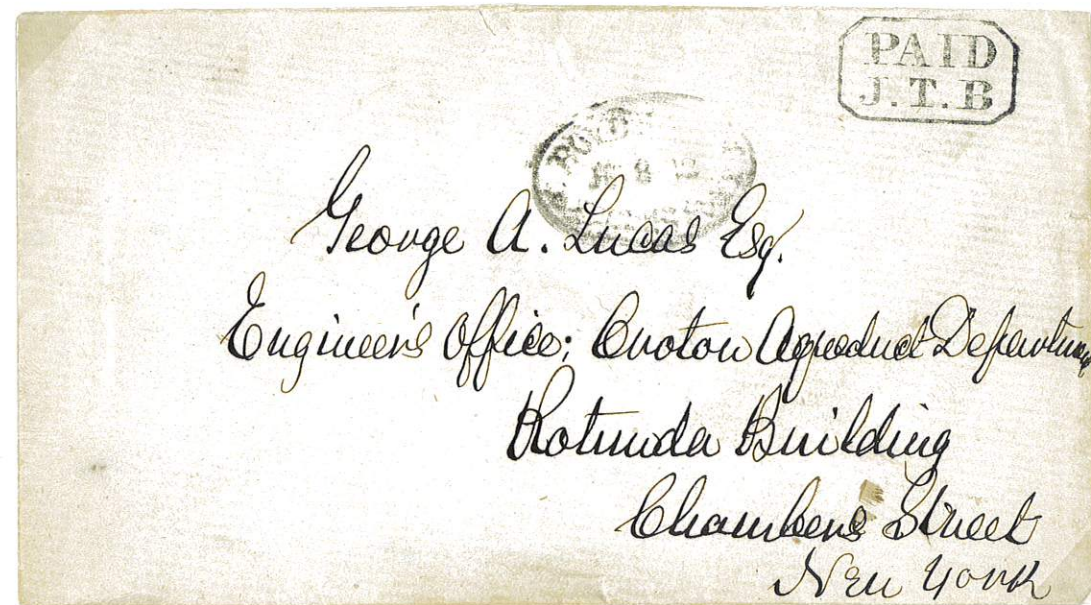 PAID
J.T.B
8
George A. Lucas Esq.
Engineers Office; Croton Aqueduct Departm
Rotunda Building
Chambers Street
New York